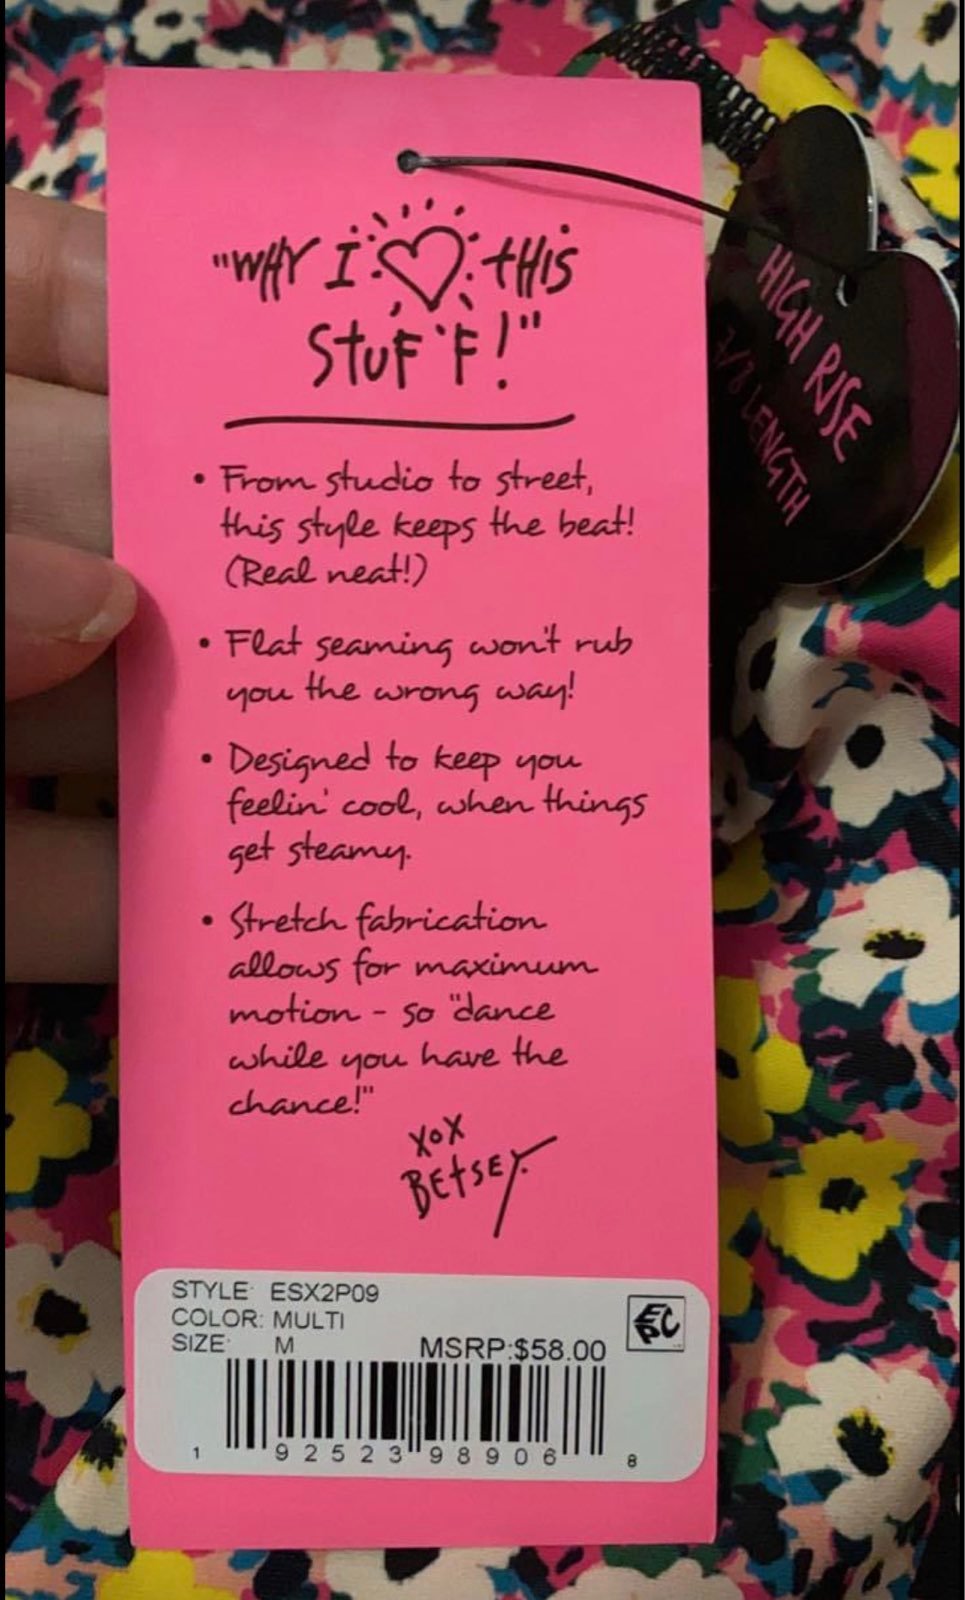 "WHY I ♡ tHIS
StUFF!"
• From studio to street,
this style keeps the beat!
(Real neat!)
• Flat seaming won't rub
you the wrong way!
• Designed to keep you
feelin' cool, when things
get steamy.
• Stretch fabrication
allows for maximum
motion - so "dance
while you have the
chance!"
XOX
BEtSEY
STYLE: ESX2P09
COLOR: MULTI
SIZE: M
MSRP:$58.00
EPC
1 92523 98906 8
HIGH RISE
7/8 LENGTH